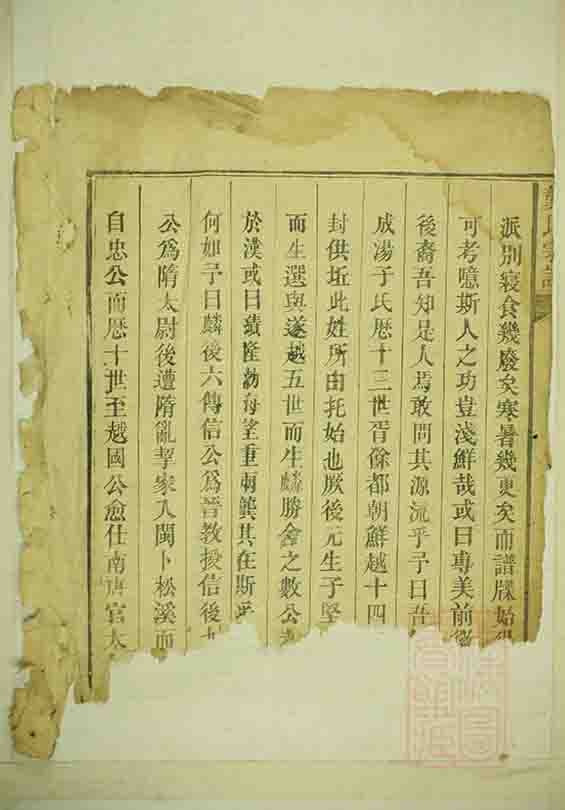 派別寢食幾廢矣寒暑幾更矣而譜牒始
可考噫斯人之功豈淺鮮哉或曰專美前
後裔吾知是人焉敢問其源流乎予曰吾
成湯子氏歷十三世胥餘都朝鮮越十四
封供坵此姓所由托始也厥後元生子堅
而生選與遂越五世而生麟勝會之數公
於漢或曰績隆勃海望重南龔其在斯乎
何如予曰麟後六傳信公為晉教授信後
公為隋太尉後遭隋亂挈家入閩卜松溪而
自忠公而歷十世至越國公愈仕南唐官太